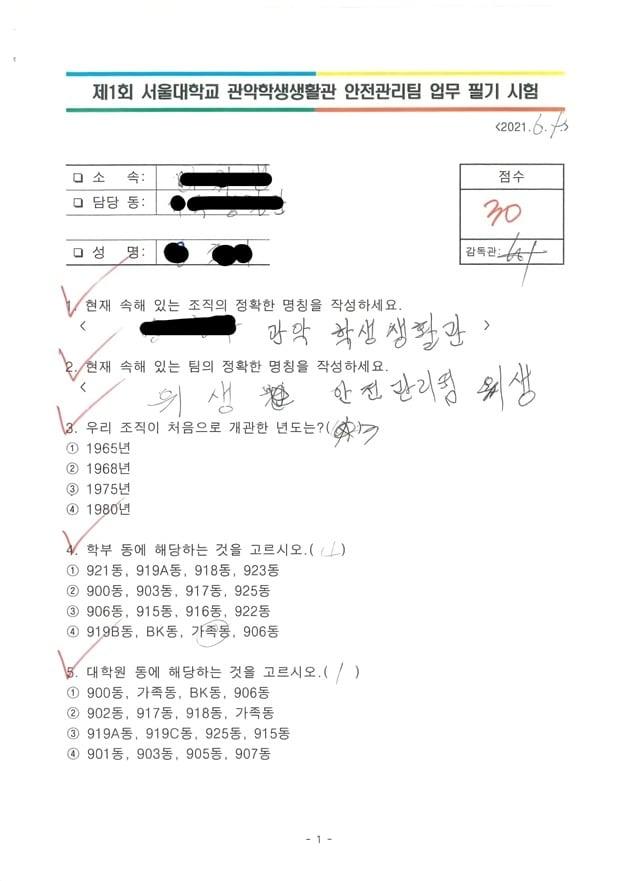 제1회 서울대학교 관악학생생활관 안전관리팀 업무 필기 시험
<2021.6.
❑ 소 속:
❑ 담당 동:
❑ 성 명:
점수
30
감독관:
1. 현재 속해 있는 조직의 정확한 명칭을 작성하세요.
< 관악 학생생활관 >
2. 현재 속해 있는 팀의 정확한 명칭을 작성하세요.
< 위생 안전관리팀 위생
3. 우리 조직이 처음으로 개관한 년도는?( )
① 1965년
② 1968년
③ 1975년
④ 1980년
4. 학부 동에 해당하는 것을 고르시오.( )
① 921동, 919A동, 918동, 923동
② 900동, 903동, 917동, 925동
③ 906동, 915동, 916동, 922동
④ 919B동, BK동, 가족동, 906동
5. 대학원 동에 해당하는 것을 고르시오.( / )
① 900동, 가족동, BK동, 906동
② 902동, 917동, 918동, 가족동
③ 919A동, 919C동, 925동, 915동
④ 901동, 903동, 905동, 907동
- 1 -